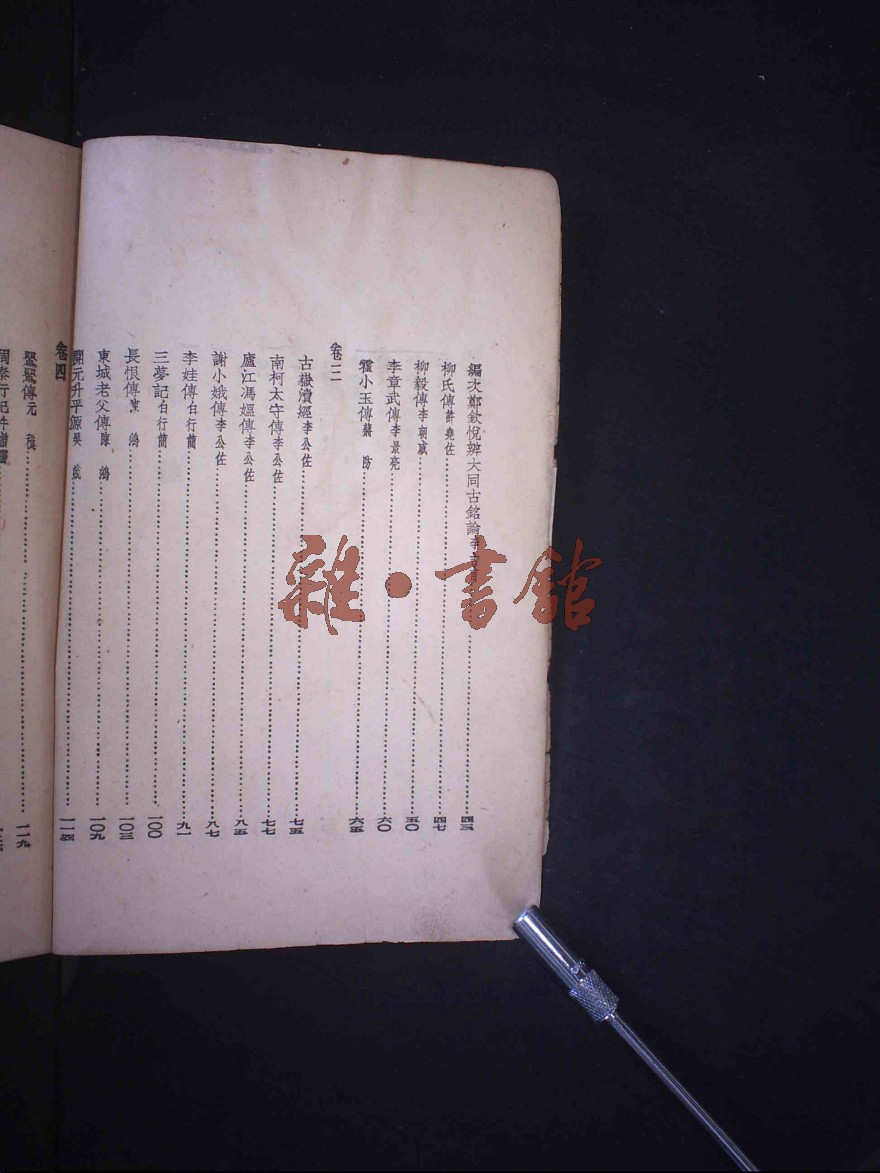 編次鄭欽悅辨大同古銘論李……四三
柳氏傳許堯佐……四七
柳毅傳李朝威……五〇
李章武傳李景亮……六〇
霍小玉傳蔣 防……六五
卷三
古嶽瀆經李公佐……七五
南柯太守傳李公佐……七七
廬江馮媼傳李公佐……八五
謝小娥傳李公佐……八七
李娃傳白行簡……九一
三夢記白行簡……一〇〇
長恨傳陳 鴻……一〇三
東城老父傳陳 鴻……一〇九
開元升平源吳 兢……一一四
卷四
鶯鶯傳元 稹……一一九
周秦行記牛僧孺
雜·書館